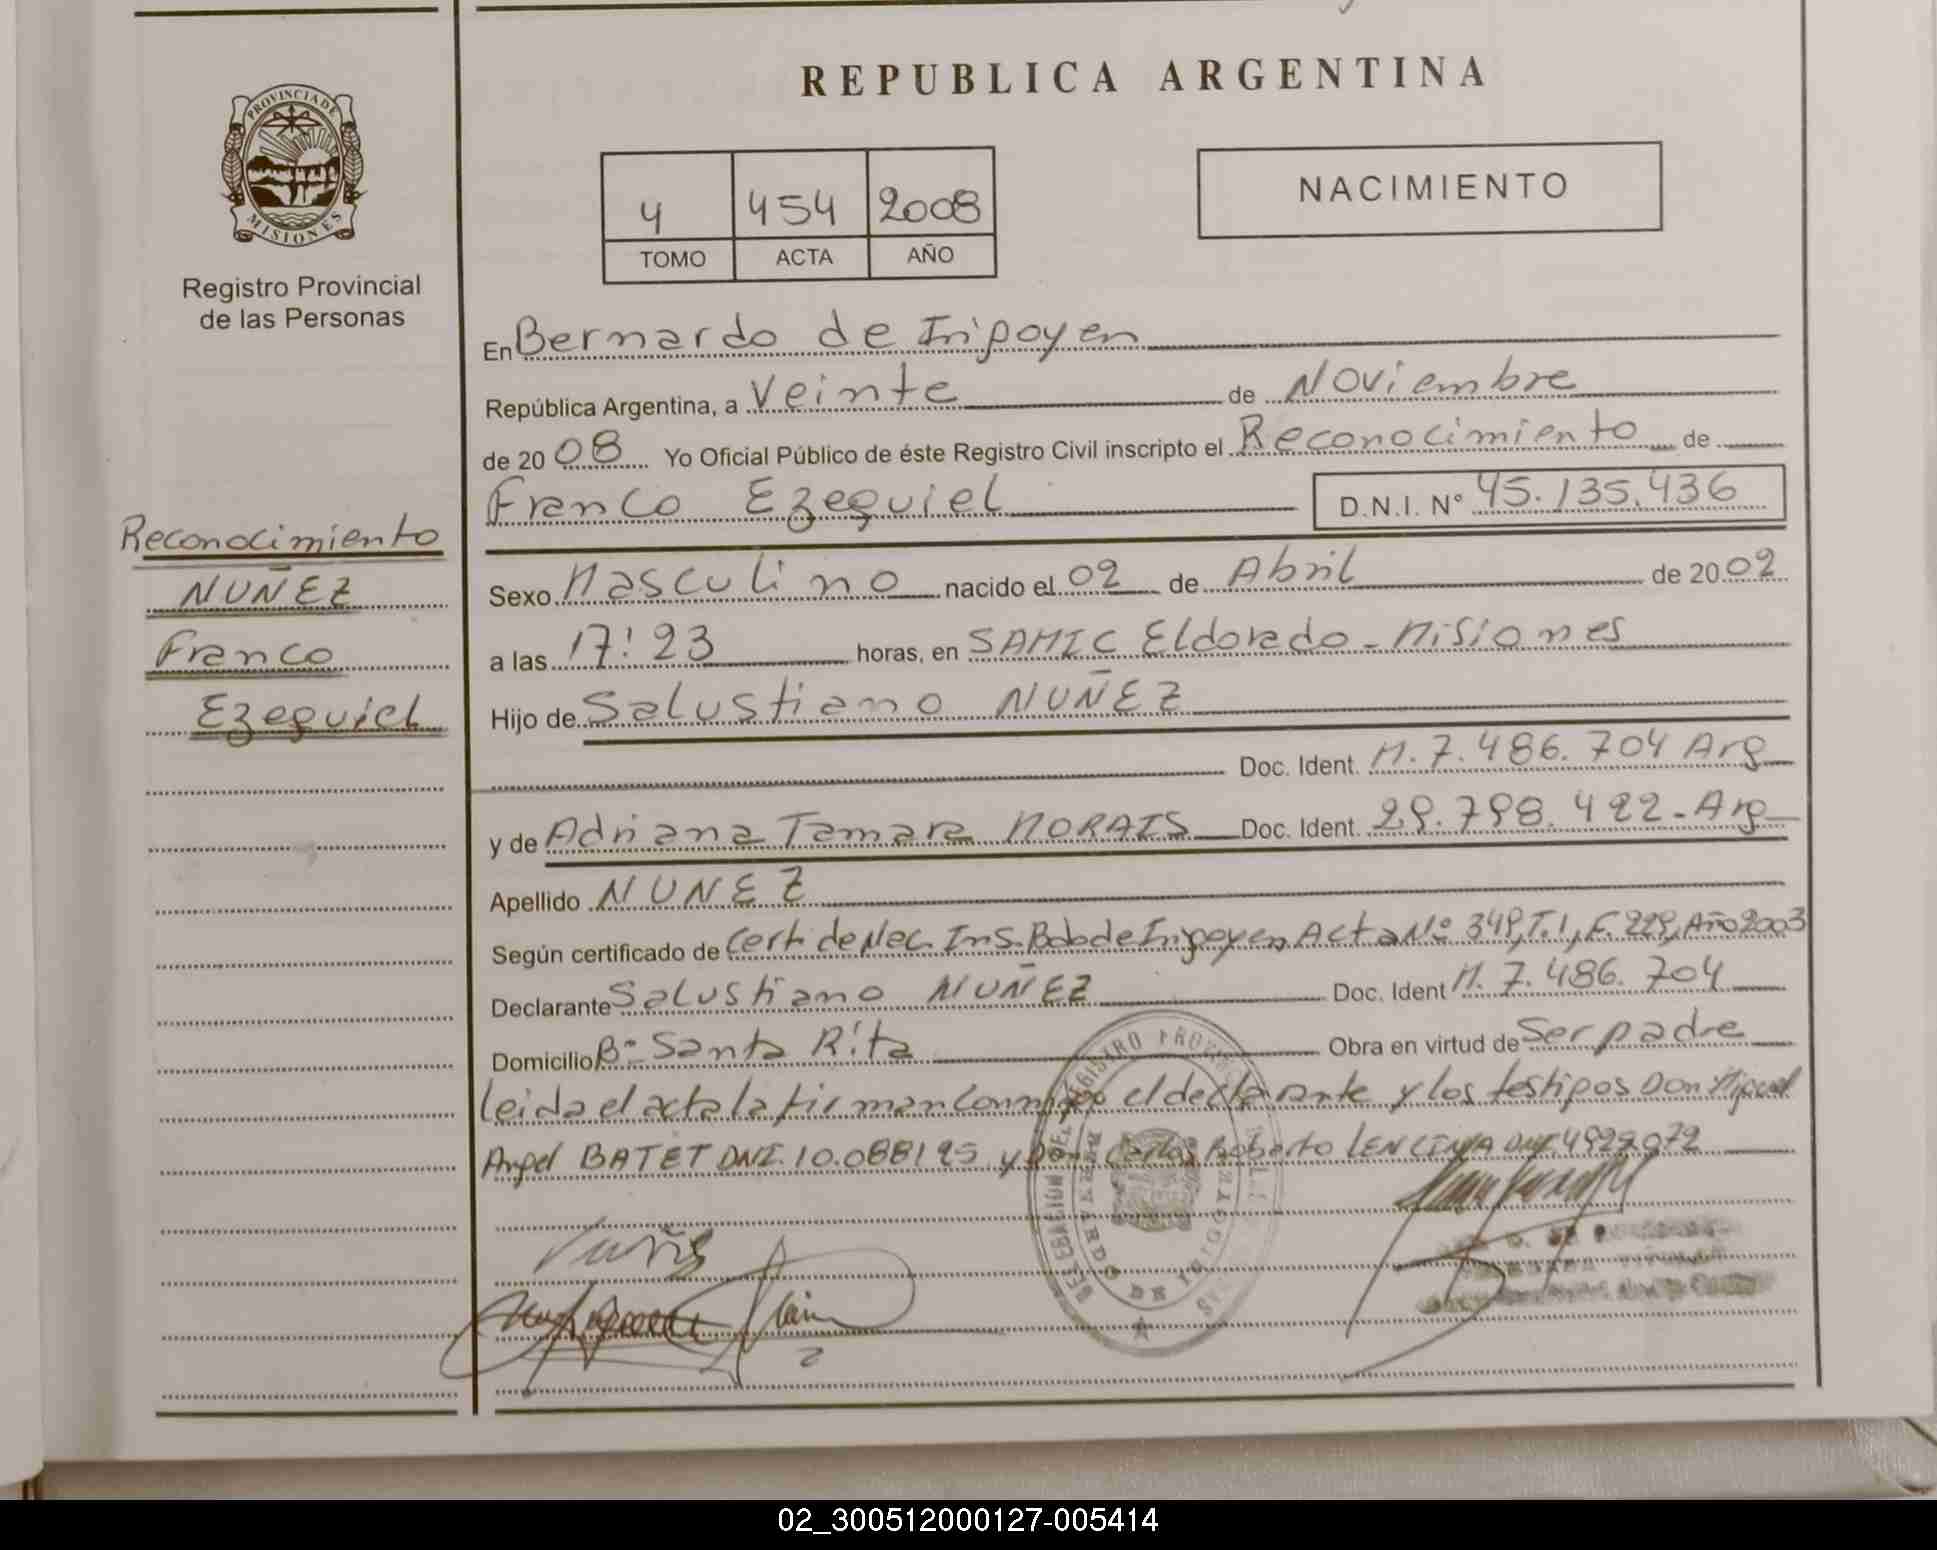 REPUBLICA ARGENTINA
PROVINCIA DE
MISIONES
Registro Provincial
de las Personas
4 454 2008
TOMO ACTA AÑO
NACIMIENTO
En Bernardo de Irigoyen
República Argentina, a Veinte de Noviembre
de 20 08 Yo Oficial Público de éste Registro Civil inscripto el Reconocimiento de
Franco Ezequiel D.N.I. N° 45.135.436
Reconocimiento
NUÑEZ
Franco
Ezequiel
Sexo Masculino nacido el 02 de Abril de 20 02
a las 17:23 horas, en SAMIC Eldorado - Misiones
Hijo de Salustiano NUÑEZ
Doc. Ident. M. 7.486.704 Arg
y de Adriana Tamara MORAIS Doc. Ident. 29.798.422 - Arg
Apellido NUÑEZ
Según certificado de Cert. de Nac. Ins. Bdo de Irigoyen, Acta N° 349, T. 1, F. 229, Año 2003
Declarante Salustiano NUÑEZ Doc. Ident M. 7.486.704
Domicilio B° Santa Rita Obra en virtud de Ser padre
Leida el acta la firman conmigo el declarante y los testigos Don Miguel
Angel BATET DNI. 10.088195 y Don Carlos Roberto LENCINA DNI. 4929072
BERNARDO DE IRIGOYEN
02_300512000127-005414